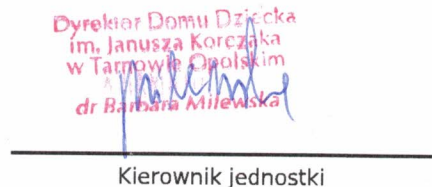 Dyrektor Domu Dziecka
im. Janusza Korczaka
w Tarnowie Opolskim
dr Barbara Milewska
Kierownik jednostki